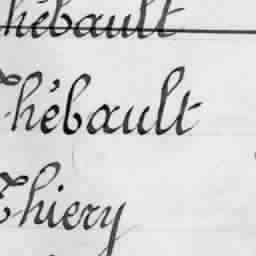 Thébault
Thébault
Thiery